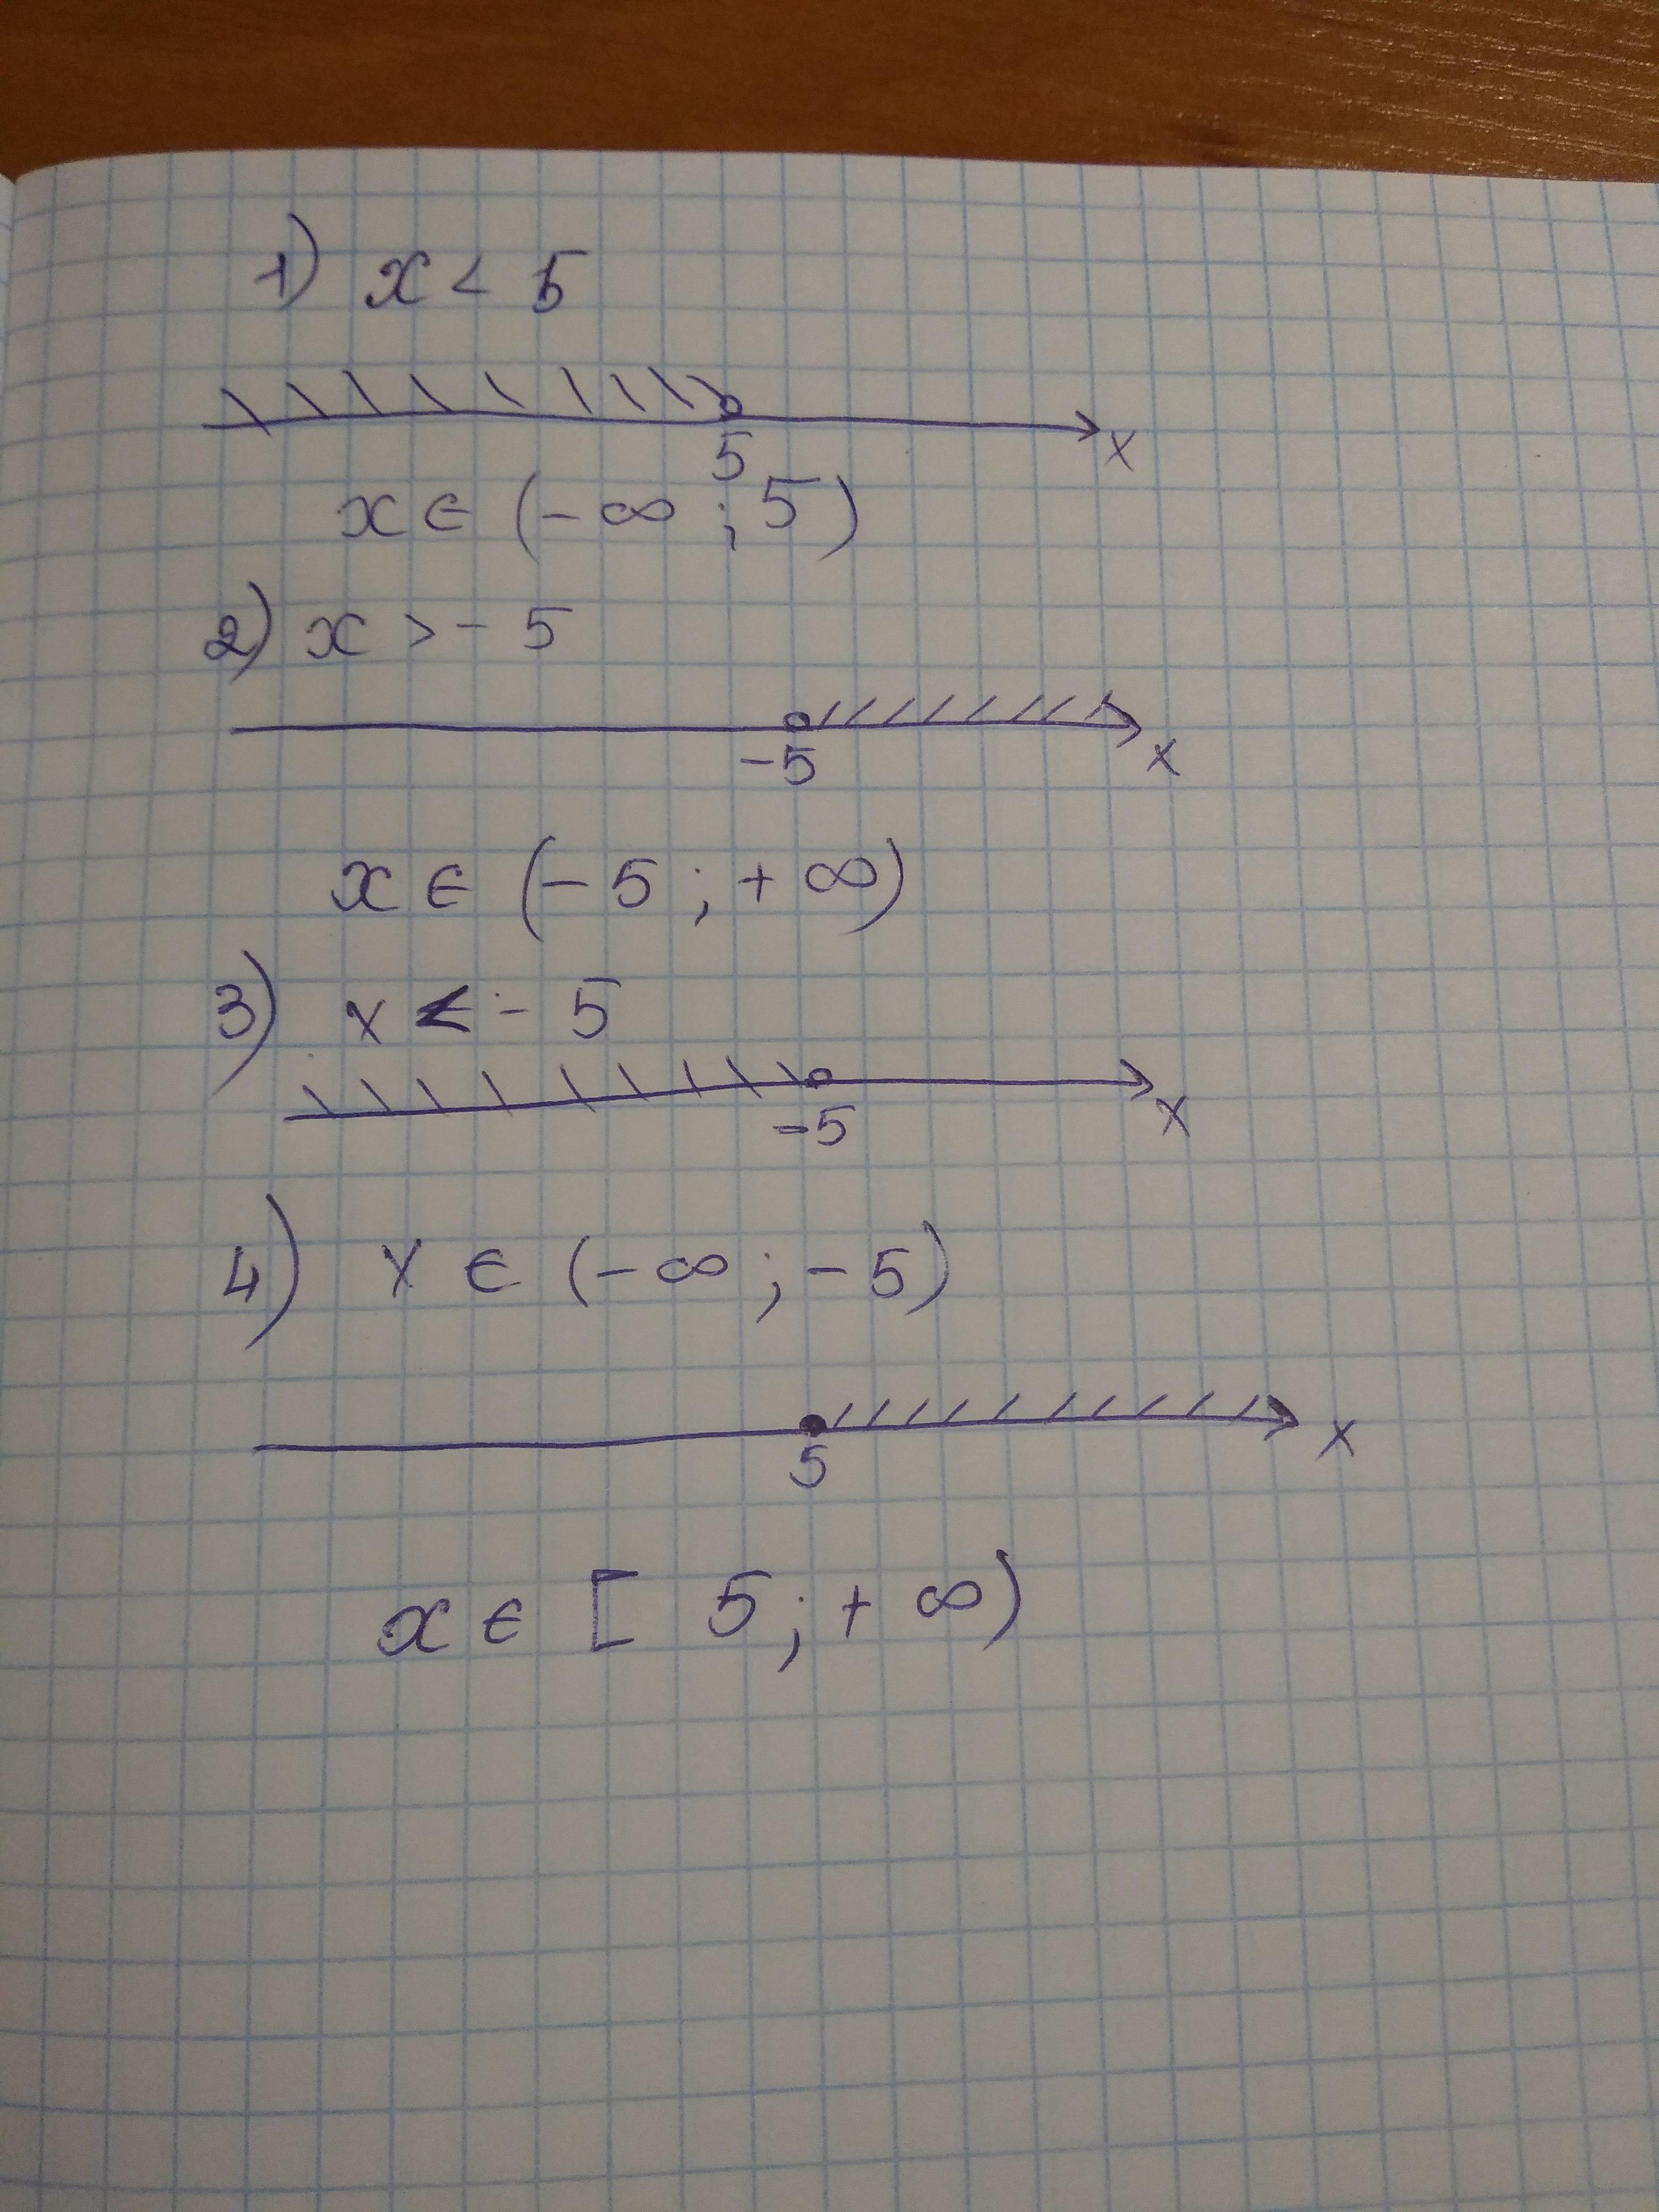 1) x < 5
5 x
x ∈ (-∞ ; 5)
2) x > - 5
-5 x
x ∈ (- 5 ; + ∞)
3) x < - 5
-5 x
4) x ∈ (-∞ ; - 5)
5 x
x ∈ [ 5 ; + ∞)